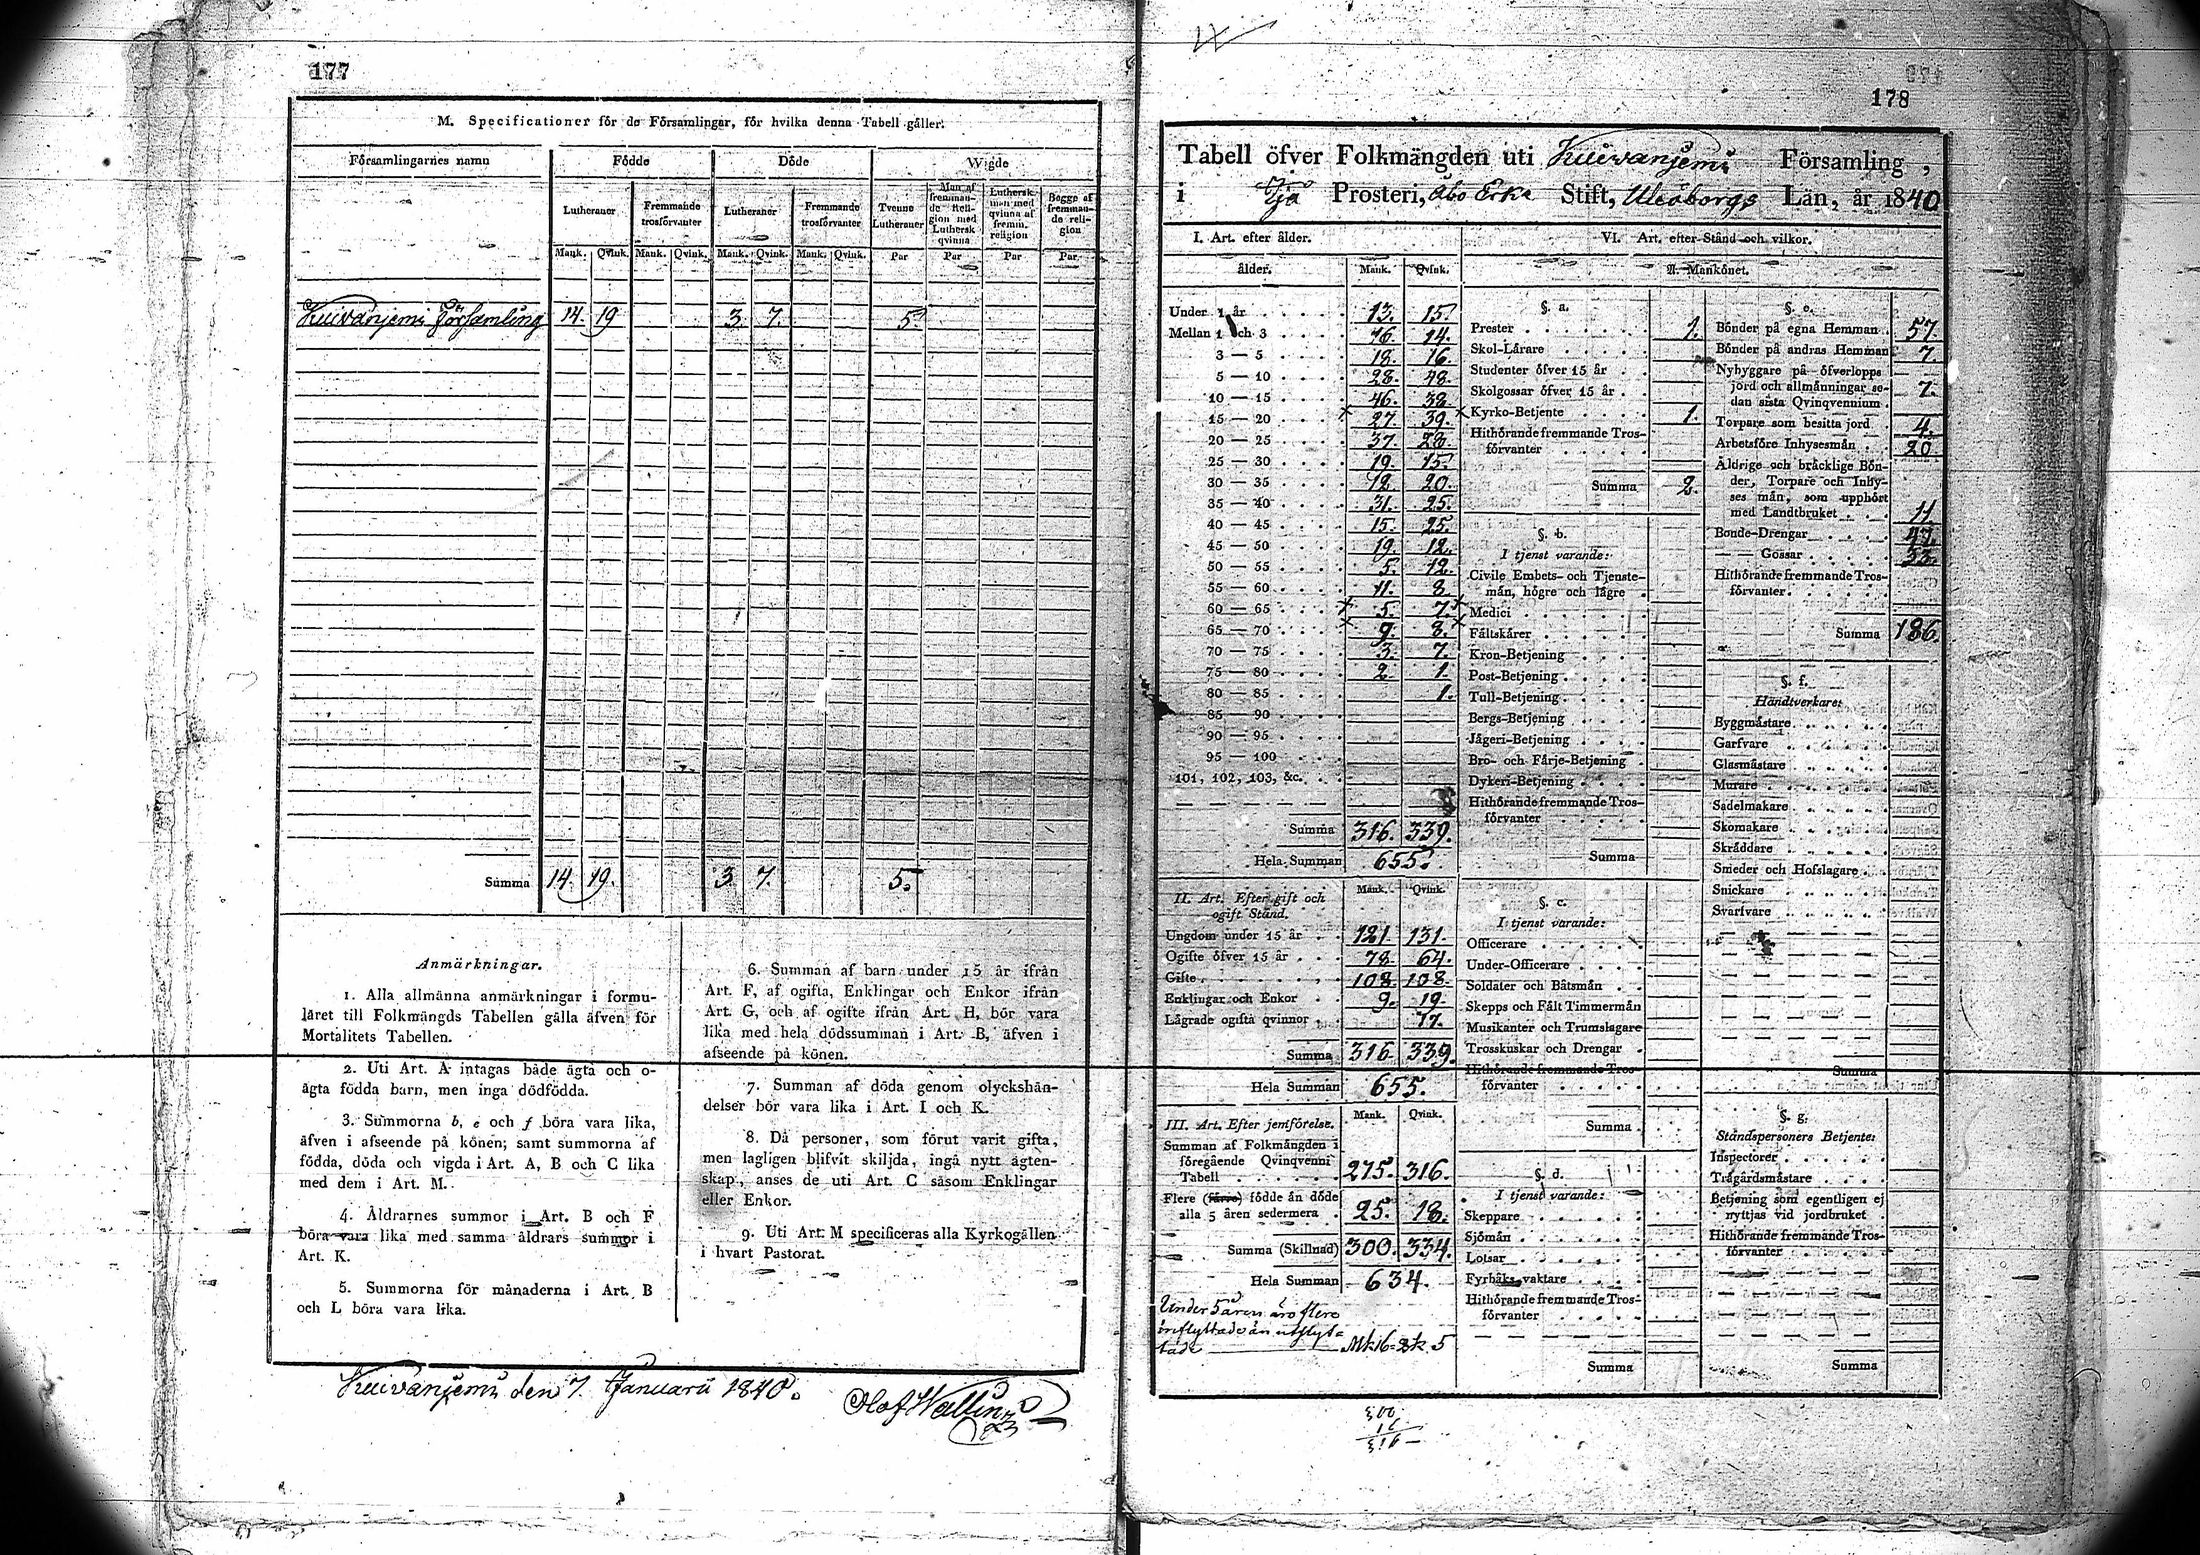 177
M. Specificationer för de Församlingar, för hvilka denna Tabell gäller.
Församlingarnes namn Födde Döde Wigde
Lutheraner Fremmande trosförvanter Lutheraner Fremmande trosförvanter Tvenne Lutheraner Man af fremmande Religion med Luthersk qvinna Luthersk man med qvinna af fremm. religion Begge af fremmande religion
Mank. Qvink. Mank. Qvink. Mank. Qvink. Mank. Qvink. Par Par Par Par
Kuivaniemi Församling 14. 19 3. 7. 5.
Summa 14. 19. 3 7. 5.
Anmärkningar.
1. Alla allmänna anmärkningar i formu-
läret till Folkmängds Tabellen gälla äfven för
Mortalitets Tabellen.
2. Uti Art. A intagas både ägta och o-
ägta födda barn, men inga dödfödda.
3. Summorna b, e och f böra vara lika,
äfven i afseende på könen; samt summorna af
födda, döda och vigda i Art. A, B och C lika
med dem i Art. M.
4. Åldrarnes summor i Art. B och F
böra vara lika med samma åldrars summor i
Art. K.
5. Summorna för månaderna i Art. B
och L böra vara lika.
6. Summan af barn under 15 år ifrån
Art. F, af ogifta, Enklingar och Enkor ifrån
Art. G, och af ogifte ifrån Art. H, bör vara
lika med hela dödssumman i Art. B, äfven i
afseende på könen.
7. Summan af döda genom olyckshän-
delser bör vara lika i Art. I och K.
8. Då personer, som förut varit gifta,
men lagligen blifvit skiljda, ingå nytt ägten-
skap, anses de uti Art. C såsom Enklingar
eller Enkor.
9. Uti Art. M specificeras alla Kyrkogällen
i hvart Pastorat.
Kuivaniemi den 7. Januarii 1840.
Olof Wallin
178
Tabell öfver Folkmängden uti Kuivaniemi Församling,
i Ijo Prosteri, Åbo Erke Stift, Uleåborgs Län, år 1840
I. Art. efter ålder.
ålder. Mank. Qvink.
Under 1 år 13. 15.
Mellan 1 och 3 16. 14.
3 — 5 18. 16.
5 — 10 28. 48.
10 — 15 46. 38.
15 — 20 27. 39.
20 — 25 37. 28.
25 — 30 19. 15.
30 — 35 12. 20.
35 — 40 31. 25.
40 — 45 15. 25.
45 — 50 19. 12.
50 — 55 5. 12.
55 — 60 11. 8.
60 — 65 5. 7.
65 — 70 9. 8.
70 — 75 3. 7.
75 — 80 2 1.
80 — 85 1.
85 — 90
90 — 95
95 — 100
101, 102, 103, &c.
Summa 316. 339.
Hela Summan 655.
II. Art. Efter gift och ogift Stånd. Mank. Qvink.
Ungdom under 15 år 121. 131.
Ogifte öfver 15 år 78. 64.
Gifte 108. 108.
Enklingar och Enkor 9. 19.
Lägrade ogifta qvinnor 17.
Summa 316 339.
Hela Summan 655.
III. Art. Efter jemförelse. Mank. Qvink.
Summan af Folkmängden i
föregående Qvinqvenni
Tabell 275. 316.
Flere (färre) födde än döde
alla 5 åren sedermera 25. 18.
Summa (Skillnad) 300. 334.
Hela Summan 634.
Under 5 åren äro flere
inflyttade än utflyt-
tade Mk 16 Qk 5
300
16
316
VI. Art. efter Stånd och vilkor.
A. Mankönet.
§. a.
Prester 1.
Skol-Lärare
Studenter öfver 15 år
Skolgossar öfver 15 år
Kyrko-Betjente 1.
Hithörande fremmande Tros-
förvanter
Summa 2.
§. b.
I tjenst varande:
Civile Embets- och Tjenste-
män, högre och lägre
Medici
Fältskärer
Kron-Betjening
Post-Betjening
Tull-Betjening
Bergs-Betjening
Jägeri-Betjening
Bro- och Färje-Betjening
Dykeri-Betjening
Hithörande fremmande Tros-
förvanter
Summa
§. c.
I tjenst varande:
Officerare
Under-Officerare
Soldater och Båtsmän
Skepps och Fält Timmermän
Musikanter och Trumslagare
Trosskuskar och Drengar
Hithörande fremmande Tros-
förvanter
Summa
§. d.
I tjenst varande:
Skeppare
Sjömän
Lotsar
Fyrbåks vaktare
Hithörande fremmande Tros-
förvanter
Summa
§. e.
Bönder på egna Hemman 57.
Bönder på andras Hemman 7.
Nybyggare på öfverlopps
jord och allmänningar se-
dan sista Qvinqvennium 7.
Torpare som besitta jord 4.
Arbetsföre Inhysesmän 20.
Åldrige och bräcklige Bön-
der, Torpare och Inhy-
ses män, som upphört
med Landtbruket 11.
Bonde-Drengar 47.
— — Gossar 33.
Hithörande fremmande Tros-
förvanter
Summa 186.
§. f.
Handtverkare:
Byggmästare
Garfvare
Glasmästare
Murare
Sadelmakare
Skomakare
Skräddare
Smeder och Hofslagare
Snickare
Svarfvare
Summa
§. g.
Ståndspersoners Betjente:
Inspectorer
Trägårdsmästare
Betjening som egentligen ej
nyttjas vid jordbruket
Hithörande fremmande Tros-
förvanter
Summa